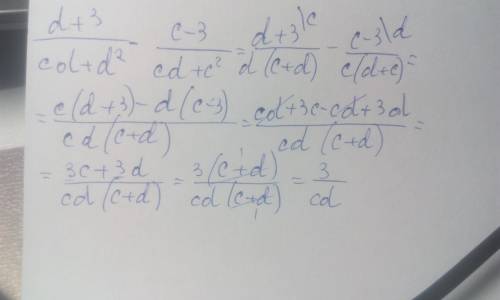 (d+3)/(cd+d²) - (c-3)/(cd+c²) = (d+3\c)/(d(c+d)) - (c-3\d)/(c(d+c)) =
= (c(d+3)-d(c-3))/(cd(c+d)) = (cd+3c-cd+3d)/(cd(c+d)) =
= (3c+3d)/(cd(c+d)) = (3(c+d)¹)/(cd(c+d)₁) = 3/cd